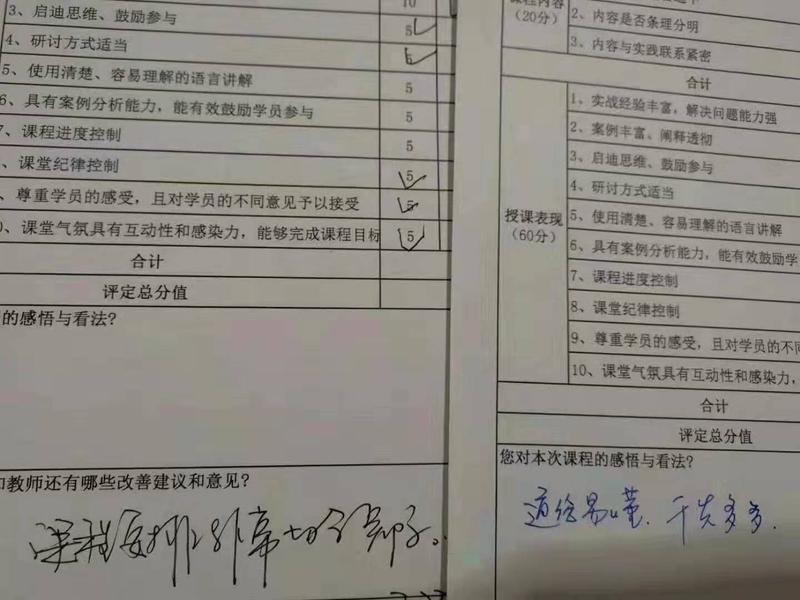 10
3、启迪思维、鼓励参与
5
4、研讨方式适当
5
5、使用清楚、容易理解的语言讲解
5
6、具有案例分析能力，能有效鼓励学员参与
5
7、课程进度控制
5
、课堂纪律控制
5
、尊重学员的感受，且对学员的不同意见予以接受
5
、课堂气氛具有互动性和感染力，能够完成课程目标
5
合计
评定总分值
的感悟与看法?
和教师还有哪些改善建议和意见?
课程安排非常
课程内容
（20分）
2、内容是否条理分明
3、内容与实践联系紧密
合计
授课表现
（60分）
1、实战经验丰富，解决问题能力强
2、案例丰富、阐释透彻
3、启迪思维、鼓励参与
4、研讨方式适当
5、使用清楚、容易理解的语言讲解
6、具有案例分析能力，能有效鼓励学
7、课程进度控制
8、课堂纪律控制
9、尊重学员的感受，且对学员的不同
10、课堂气氛具有互动性和感染力，
合计
评定总分值
您对本次课程的感悟与看法?
通俗易懂. 干货多多.